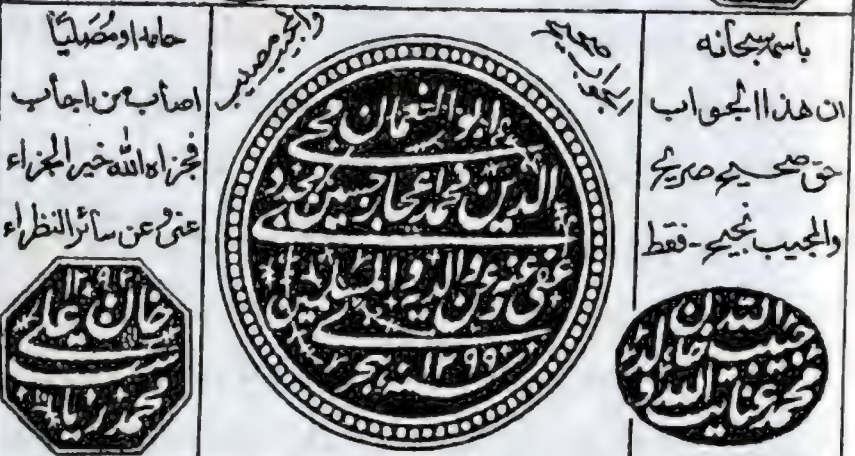 باسمہ سبحانه
ان هذا الجواب
حق صحیح صریح
والمجیب نجیح - فقط
محمد عنایت اللہ
الجواب صحیح
والمجیب مصیب
ابو النعمان محی
الدین محمد اعجاز حسین مجددی
عفی عنہ وعن والدیه والمسلمین
سنہ ہجری ۱۲۹۹
حامدا ومصلیًا
اصاب من اجاب
فجزاه اللہ خیر الجزاء
عنی وعن سائر النظراء
۱۲۹۲
خان علی
محمد ریاست